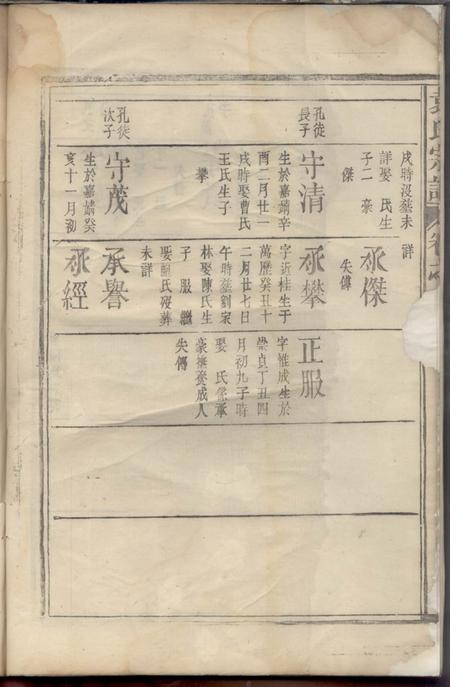 袁氏宗譜
戌時沒塟未詳
詳娶 氏生
子二 豪
傑
孔徒
長子
守清
生於嘉靖辛
酉二月廿一
戌時娶曹氏
王氏生子
攀
孔徒
次子
守茂
生於嘉靖癸
亥十一月初
承傑
失傳
承攀
字近桂生于
萬歷癸丑十
二月廿七日
午時塟劉家
林娶陳氏生
子 服 繼
娶 氏歿葬
未詳
承譽
承經
正服
字惟成生於
崇貞丁丑四
月初九子時
娶 氏係承
豪撫養成人
失傳